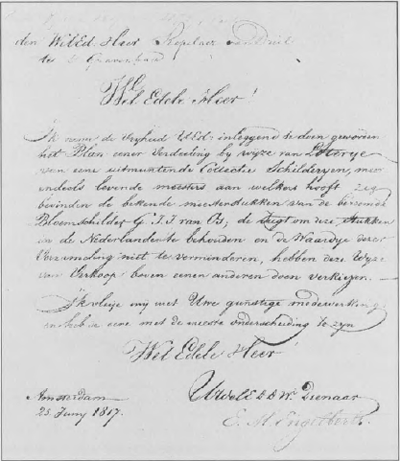 den WelEd. Heer Repelaer van Driel
te 's Gravenhage
Wel Edele Heer!
Ik neem de vryheid UEd. inleggend te doen geworden
het Plan eener Verdeeling by wyze van Loterye
van eene uitmuntende Collectie Schilderyen, mee-
rendeels levende meesters aan welker hooft zig
bevinden de bekende meesterstukken van de beroemde
Bloemschilder G. J. J. van Os; de zugt om deze stukken
in de Nederlanden te behouden en de Waardye dezer
Verzameling niet te verminderen, hebben deze Wyze
van Verkoop boven eenen anderen doen verkiezen.
Ik vleije my met Uwe gunstige medewerking
en heb de eere met de meeste onderscheiding te zyn
Wel Edele Heer!
Amsterdam
25 Juny 1817.
UWelEd. D. W. Dienaar
E. M. Engelberts.